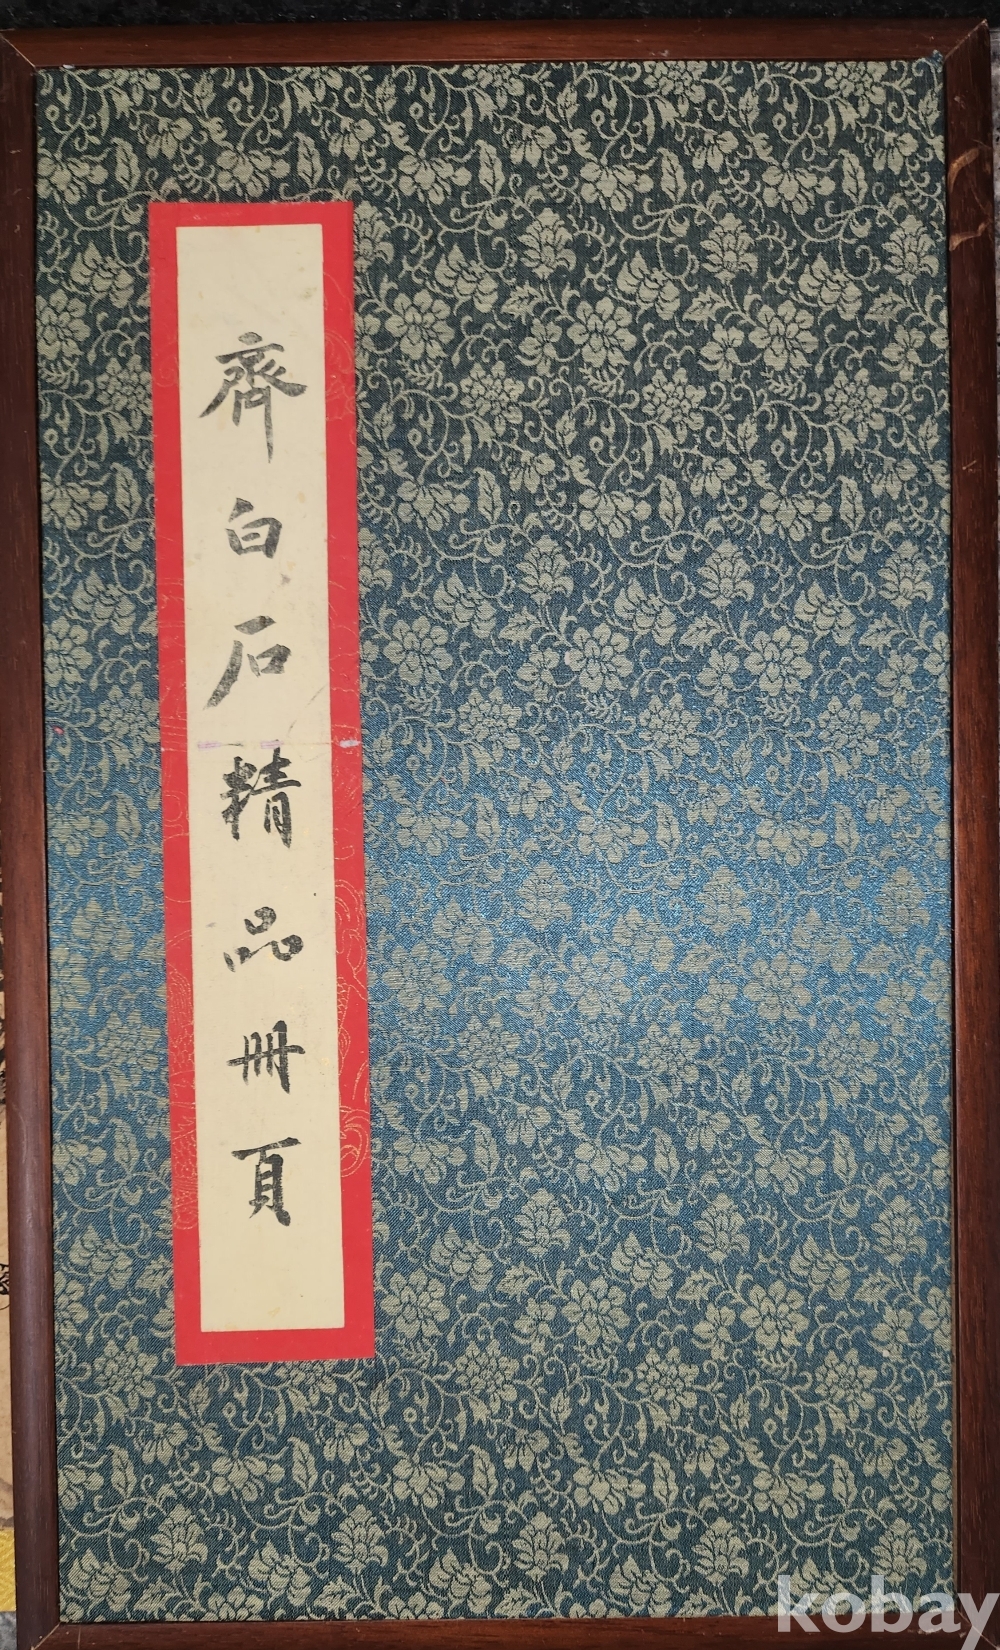 齊白石精品冊頁
kobay